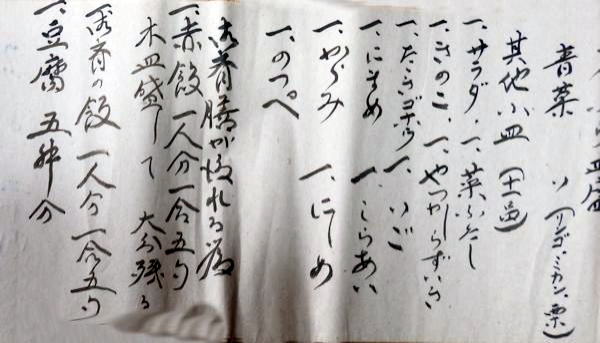 青菜 〃 (リンゴ、ミカン、栗)
其他小皿 (十一品)
一、サラダ、 一、菜ひたし
一、きのこ、 一、やつがしらずいき
一、たたきゴボウ 一、いご
一、にまめ 一、しらあい
一、からみ 一、にしめ
一、のっぺ
お斉膳が後れる為
一、赤飯 一人分一合五勺
木皿盛して 大分残る
お斉の飯 一人分一合五勺
一、豆腐 五舛分